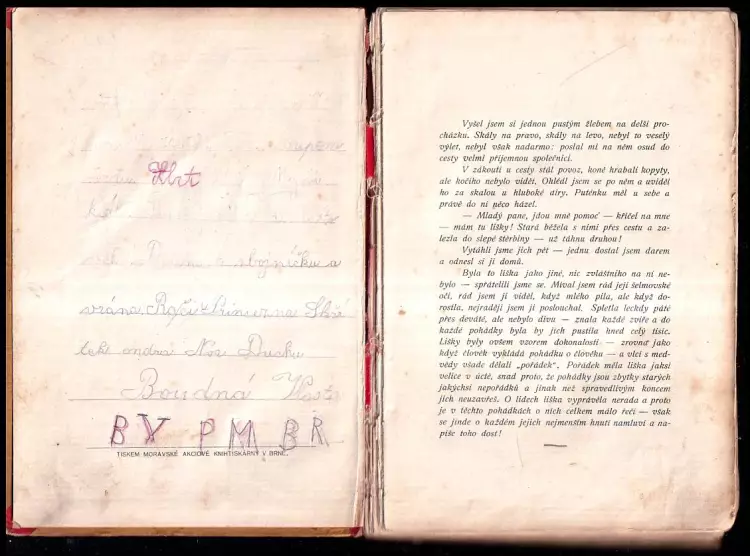 Krt
vrána
Boudná
B V P M B R
TISKEM MORAVSKÉ AKCIOVÉ KNIHTISKÁRNY V BRNĚ.
Vyšel jsem si jednou pustým žlebem na delší pro-
cházku. Skály na pravo, skály na levo, nebyl to veselý
výlet, nebyl však nadarmo: poslal mi na něm osud do
cesty velmi příjemnou společnici.
V zákoutí u cesty stál povoz, koně hrabali kopyty,
ale hočího nebylo viděti. Ohlédl jsem se po něm a uviděl
ho za skalou u hluboké díry. Puténku měl u sebe a
právě do ní něco házel.
— Mladý pane, jdou mně pomoć — křičel na mne
— mám tu lišky! Stará běžela s nimi přes cestu a za-
lezla do slepé štěrbiny — už táhnu druhou!
Vytáhli jsme jich pět — jednu dostal jsem darem
a odnesl si ji domů.
Byla to liška jako jiné, nic zvláštního na ní ne-
bylo — spřátelili jsme se. Míval jsem rád její šelmovské
oči, rád jsem ji viděl, když mléko pila, ale když do-
rostla, nejraději jsem ji poslouchal. Spletla leckdy páté
přes deváté, ale nebylo divu — znala každé zvíře a do
každé pohádky byla by jich pustila hned celý tisíc.
Lišky byly ovšem vzorem dokonalosti — zrovna jako
když člověk vykládá pohádku o člověku — a vlci s med-
vědy všade dělali „pořádek". Pořádek měla liška jaksi
velice v úctě, snad proto, že pohádky jsou zbytky starých
jakýchsi nepořádků a jinak než spravedlivým koncem
jich neuzavřeš. O lidech liška vyprávěla nerada a proto
je v těchto pohádkách o nich celkem málo řečí — však
se jinde o každém jejich nejmenším hnutí namluví a na-
píše toho dost!